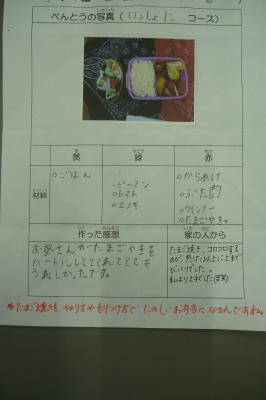 べんとうの写真(いっしょに コース)
黄 緑 赤
材料
○ごはん
○ピーマン
○トマト
○エノキ
○からあげ
○ぶた肉
○ウインナー
○たまごやき
作った感想
お母さんがたまごやきを
ハートにしてくれてとても
うれしかったです。
家の人から
たまご焼き、コロコロする
のが、思った以上に上手で
びっくりでした。
私より上手でした(笑)
*たまご焼きも 切り方やもりつけ方で たのしいお弁当になるんですね。